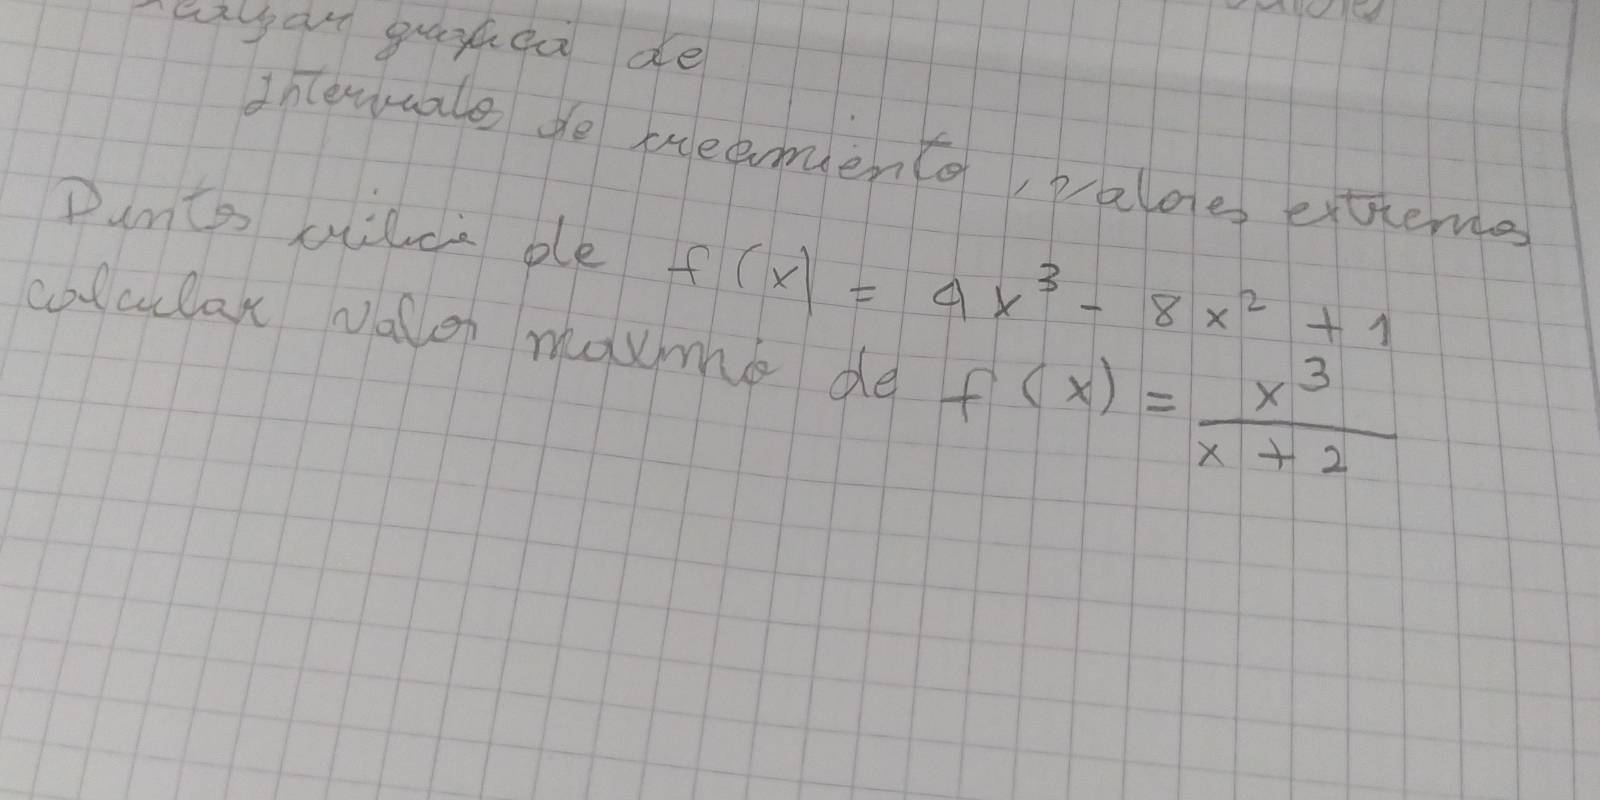 gráfica de
Intervalos de creamiento, valores extremos
Puntos critici de f(x) = 4x³ - 8x² + 1
calcular valor maximo de f(x) = x³ / x + 2